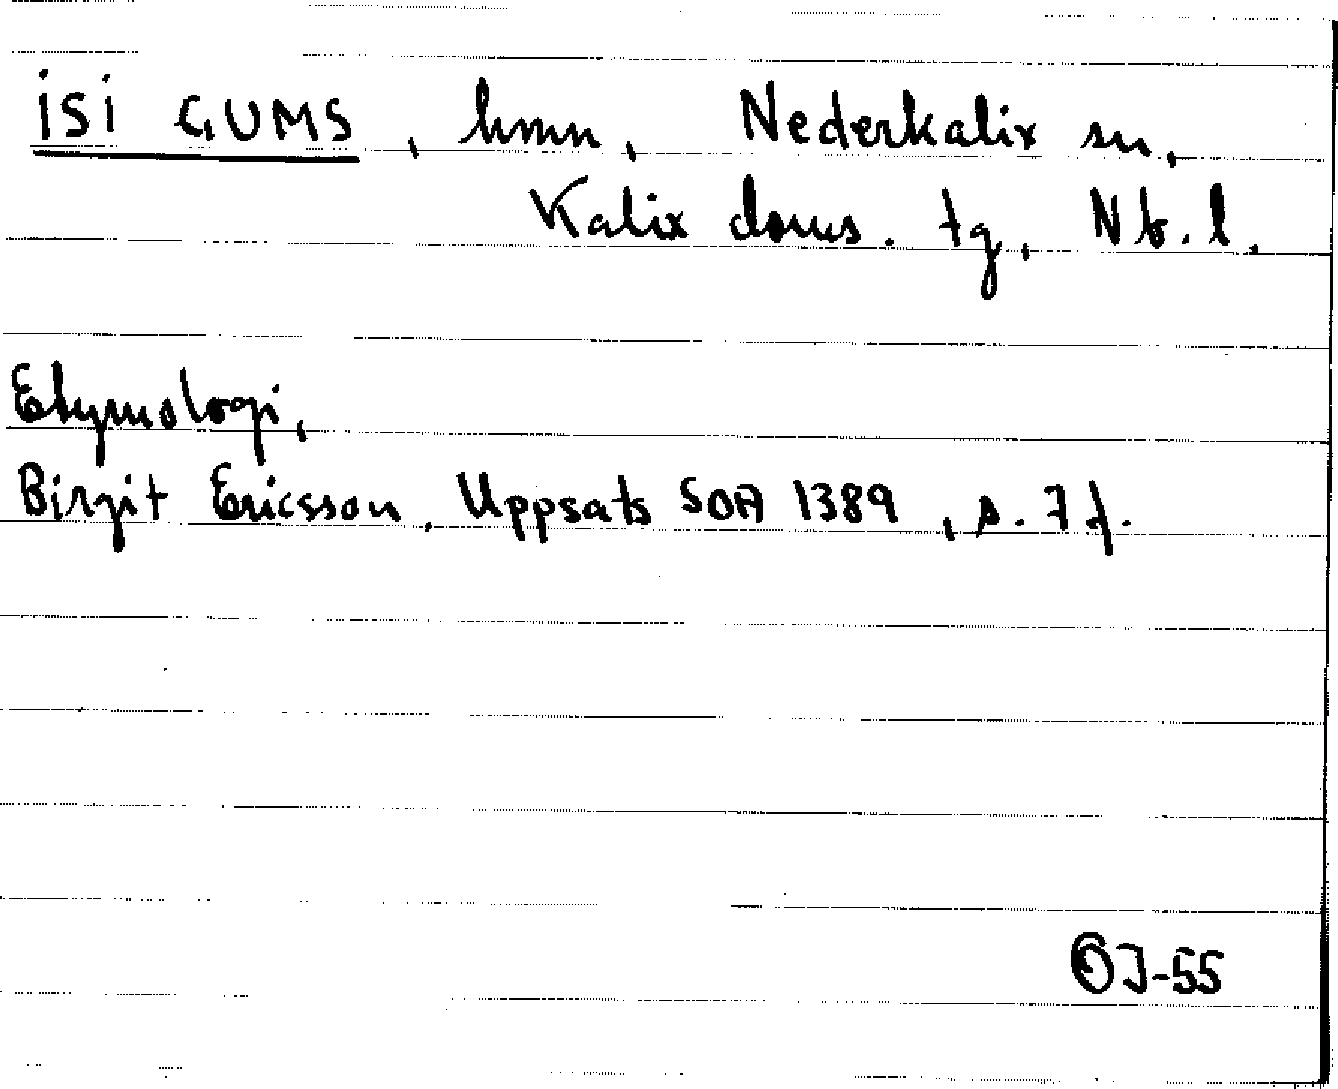 isi GUMS, hmn, Nederkalix sn,
Kalix doms. tg, Nb. l.
Etymologi,
Birgit Ericsson, Uppsats SOA 1389, s. 7 f.
J-55